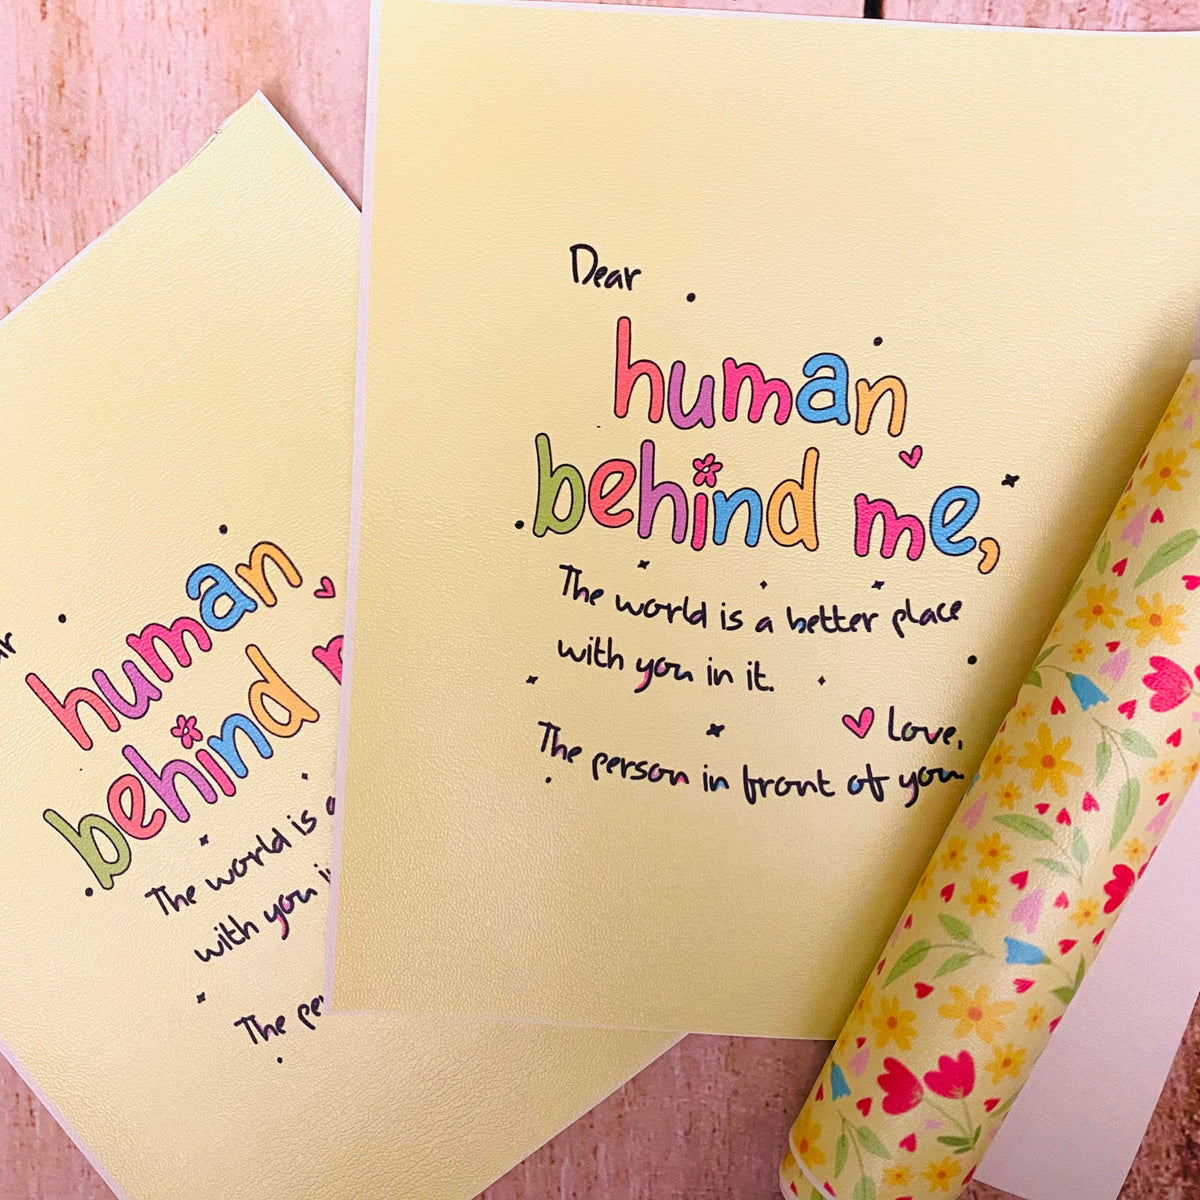 Dear
human
behind me,
The world is a better place
with you in it.
Love,
The person in front of you.
human
behind
The world is
with you
The